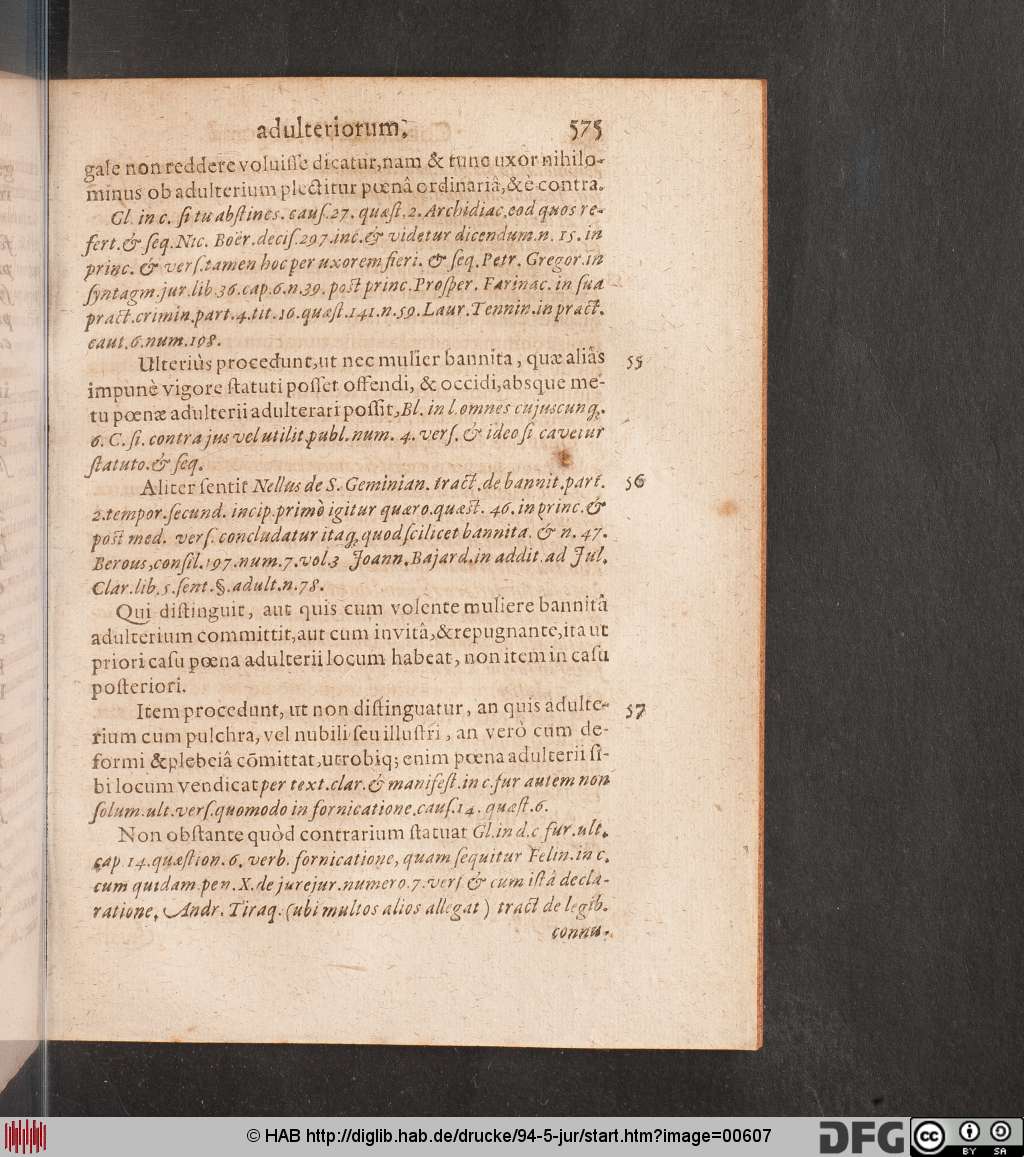 adulteriorum. 575
gale non reddere voluisse dicatur, nam & tunc uxor nihilo-
minus ob adulterium plectitur pœnâ ordinariâ, & è contra.
Gl. in c. si tu abstines. caus. 27. quæst. 2. Archidiac. eod quos re-
fert. & seq. Nic. Boër. decis. 297. inc. & videtur dicendum. n. 15. in
princ. & vers. tamen hoc per uxorem fieri. & seq. Petr. Gregor. in
syntagm. jur. lib. 36. cap. 6. n. 39. post princ. Prosper. Farinac. in sua
pract. crimin. part. 4. tit. 16. quæst. 141. n. 59. Laur. Tennin. in pract.
caut. 6. num. 198.
Ulteriùs procedunt, ut nec mulier bannita, quæ aliâs 55
impunè vigore statuti posset offendi, & occidi, absque me-
tu pœnæ adulterii adulterari possit, Bl. in l. omnes cujuscunq;.
6. C. si. contra jus vel utilit publ. num. 4. vers. & ideo si cavetur
statuto. & seq.
Aliter sentit Nellus de S. Geminian. tract. de bannit. part. 56
2. tempor. secund. incip. primò igitur quæro. quæst. 46. in princ. &
post med. vers. concludatur itaq; quod scilicet bannita. & n. 47.
Berous, consil. 197. num. 7. vol. 3 Joann. Bajard. in addit. ad Jul.
Clar. lib. 5. sent. §. adult. n. 78.
Qui distinguit, aut quis cum volente muliere bannitâ
adulterium committit, aut cum invitâ, & repugnante, ita ut
priori casu pœna adulterii locum habeat, non item in casu
posteriori.
Item procedunt, ut non distinguatur, an quis adulte- 57
rium cum pulchra, vel nubili seu illustri, an verò cum de-
formi & plebeiâ cõmittat, utrobiq; enim pœna adulterii si-
bi locum vendicat per text. clar. & manifest. in c. fur autem non
solum. ult. vers. quomodo in fornicatione. caus. 14. quæst. 6.
Non obstante quòd contrarium statuat Gl. in d. c fur. ult.
cap. 14. quæstion. 6. verb. fornicatione, quam sequitur Felin. in c.
cum quidam. pen. X. de jurejur. numero. 7. vers & cum istâ decla-
ratione. Andr. Tiraq. (ubi multos alios allegat) tract de legib.
connu-
© HAB http://diglib.hab.de/drucke/94-5-jur/start.htm?image=00607
DFG
cc
BY SA